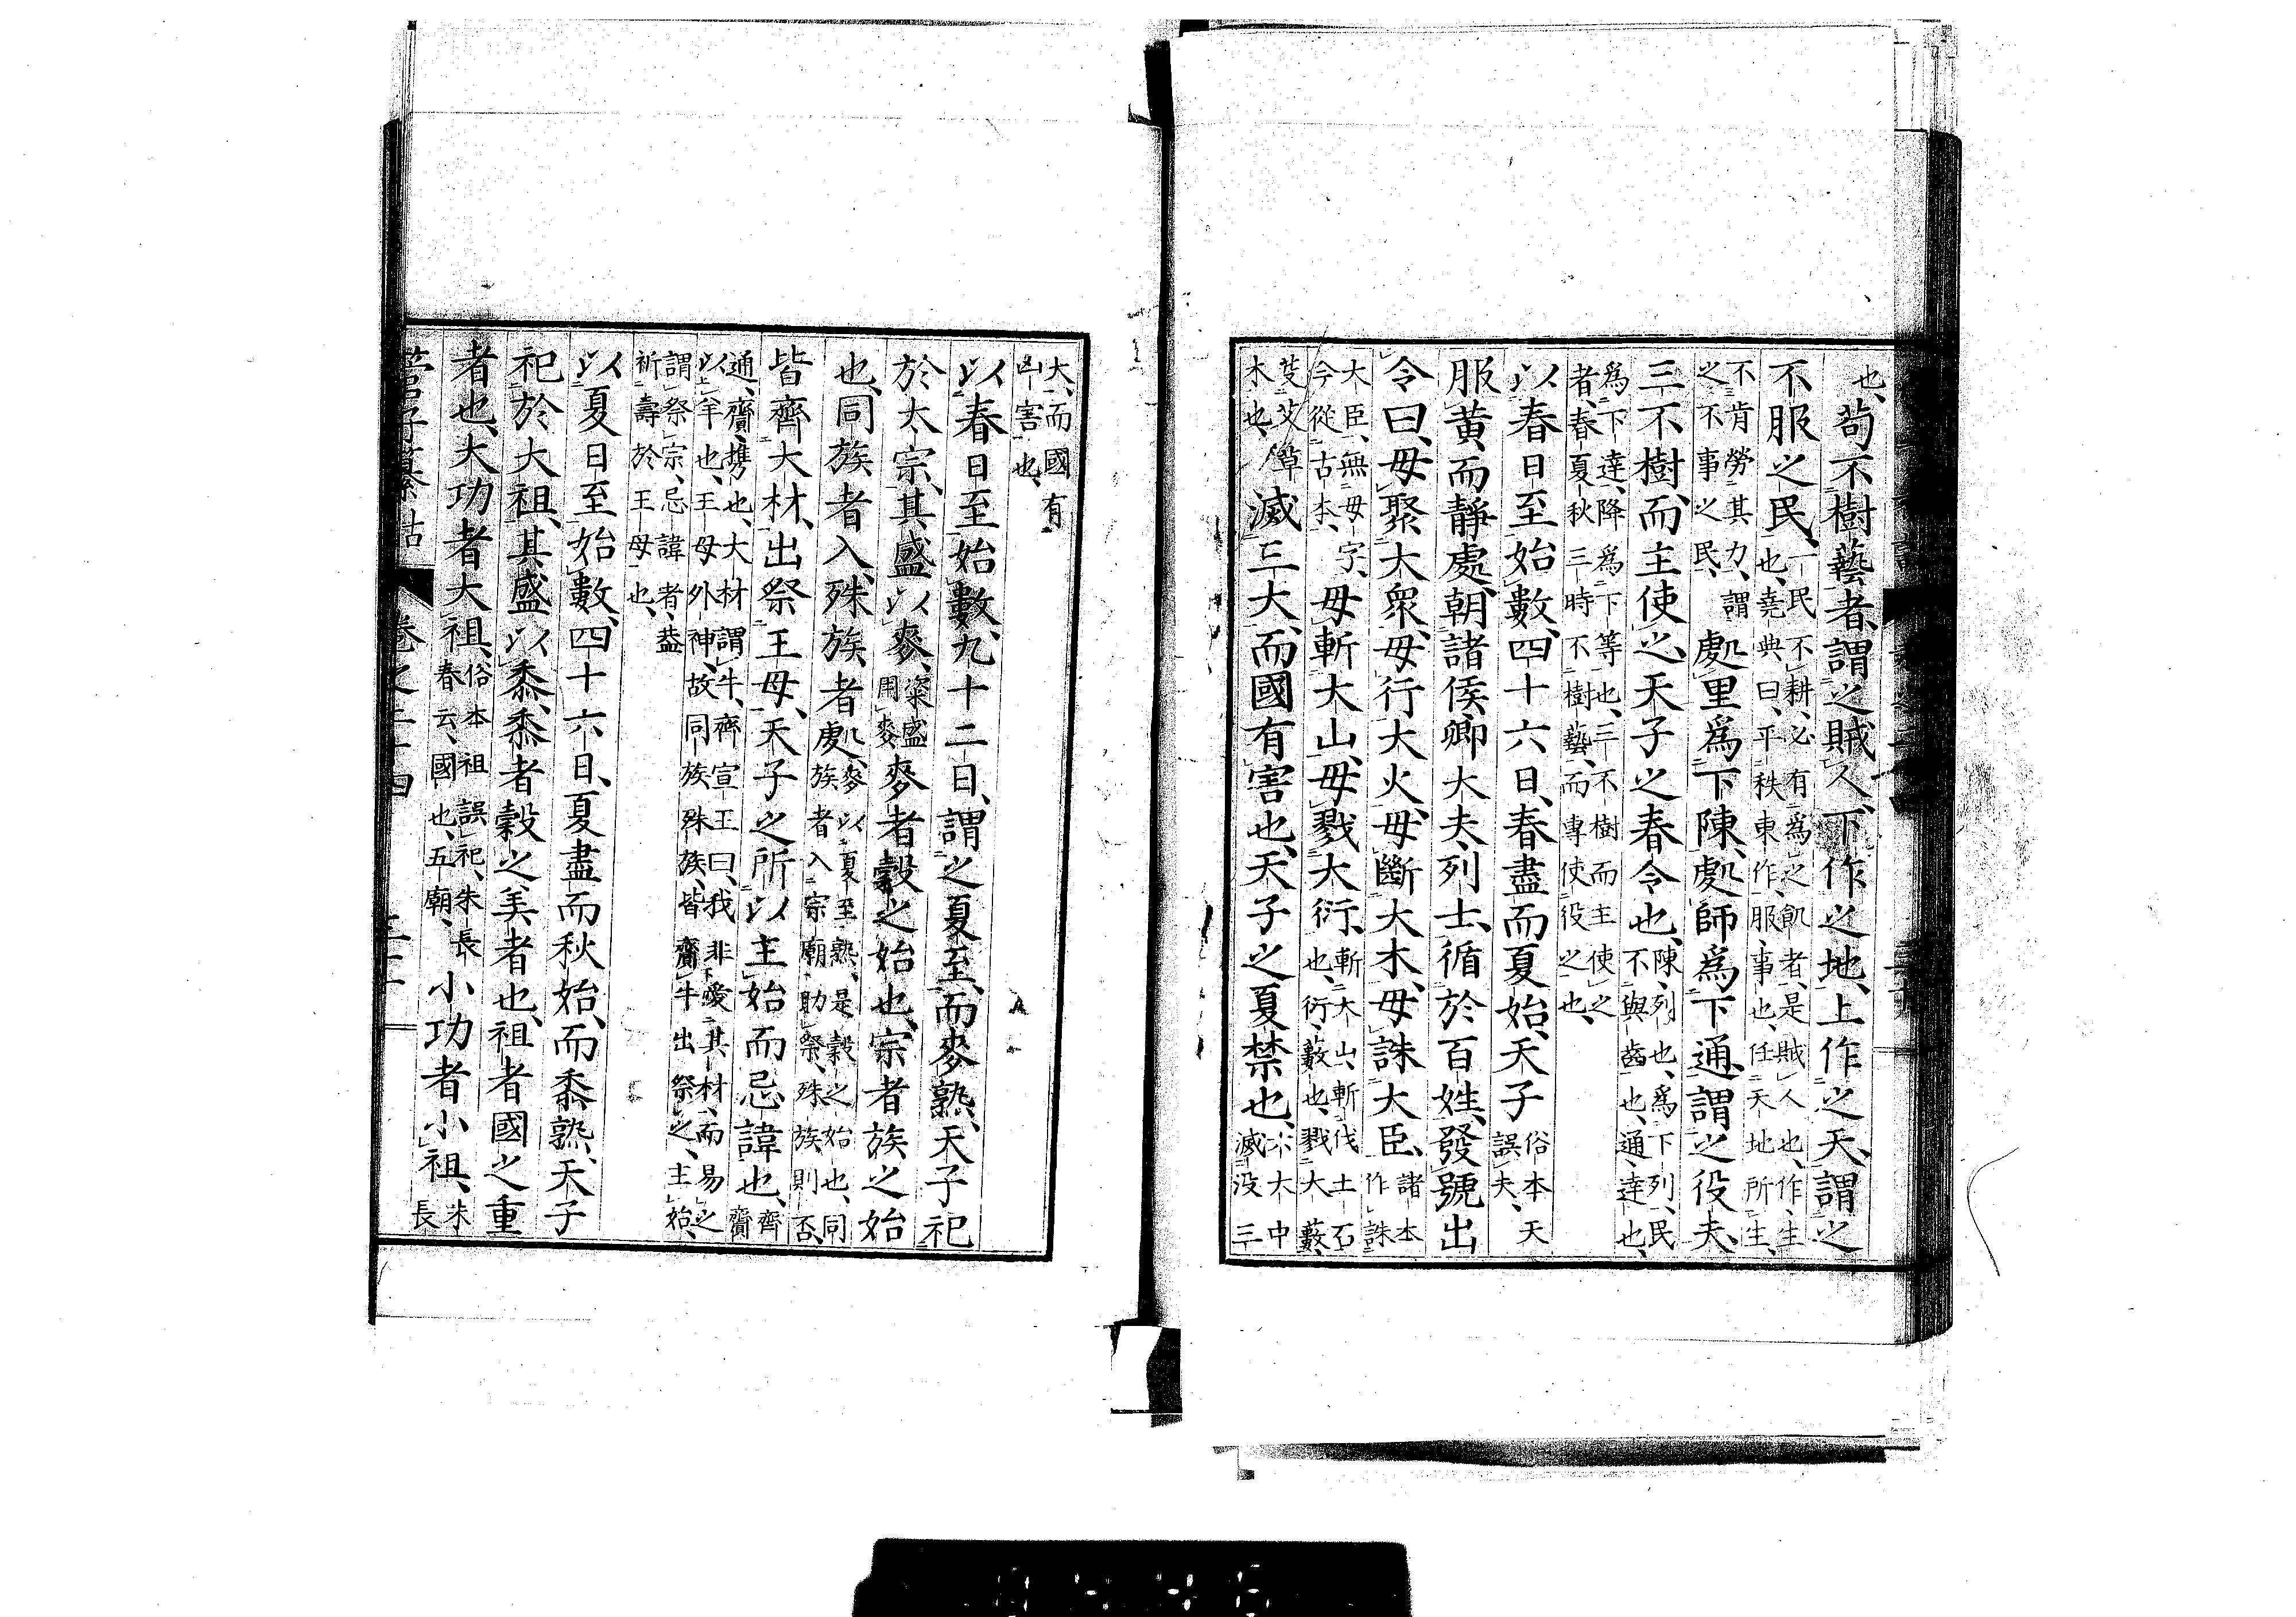 也、苟不樹藝者、謂之賊人、下作之地、上作之天、謂之
不服之民、一民不耕、必有為之飢者、是賊人也、作、生
也、堯典曰、平秩東作、服、事也、任天地所生、
不肯勞其力、謂
之不事之民、處里爲下陳、處師爲下通、謂之役夫、
三不樹而主使之、天子之春令也、陳、列也、爲下列、民
不與齒也、通、達也、
爲下達、降爲下等也、三不樹而主使之
者、春夏秋三時不樹藝、而專使役之也、
以春日至始、數四十六日、春盡而夏始、天子俗本天
誤夫、
服黄而靜處、朝諸侯卿大夫列士、循於百姓、發號出
令曰、毋聚大衆、毋行大火、毋斷大木、毋誅大臣、諸本
作誅
大臣、無毋字、
今從古本、毋斬大山、毋戮大衍、斬大山、斬伐土石
也、衍、藪也、戮大藪、
芟艾草
木也、滅三大、而國有害也、天子之夏禁也、六大中
滅没三
大、而國有
凶害也、
以春日至始、數九十二日、謂之夏至、而麥熟、天子祀
於太宗、其盛以麥、粢盛
用麥麥者穀之始也、宗者族之始
也、同族者入、殊族者處、麥以夏至熟、是穀之始也、同
族者入宗廟助祭、殊族則否、
皆齊大材、出祭王母、天子之所以主始而忌諱也、齊
齎
通、齎、攜也、大材謂牛、齊宣王曰、我非愛其材、而易之
以羊也、王母外神、故同族殊族、皆齎牛出祭之、主始、
謂祭宗、忌諱者、蓋
祈壽於王母也、
以夏日至始、數四十六日、夏盡而秋始、而黍熟、天子
祀於大祖、其盛以黍、黍者穀之美者也、祖者國之重
者也、大功者大祖、俗本祖誤祀、朱長
春云、國也、五廟、小功者小祖、朱
長
管子纂詁 卷之二十四